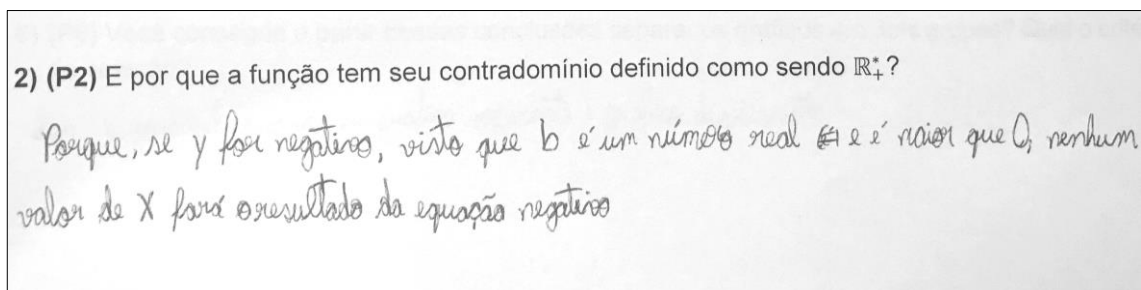 2) (P2) E por que a função tem seu contradomínio definido como sendo ℝ*₊?
Porque, se y for negativo, visto que b é um número real e é maior que 0, nenhum
valor de X fará o resultado da equação negativo